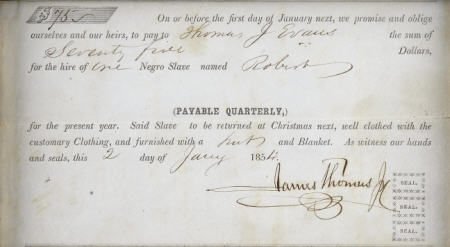 $75 On or before the first day of January next, we promise and oblige
ourselves and our heirs, to pay to Thomas J Evans the sum of
Seventy five Dollars,
for the hire of one Negro Slave named Robert
(PAYABLE QUARTERLY,)
for the present year. Said Slave to be returned at Christmas next, well clothed with the
customary Clothing, and furnished with a and Blanket. As witness our hands
and seals, this 2 day of Jany 185
James Thomas Jr
SEAL.
SEAL.
SEAL.